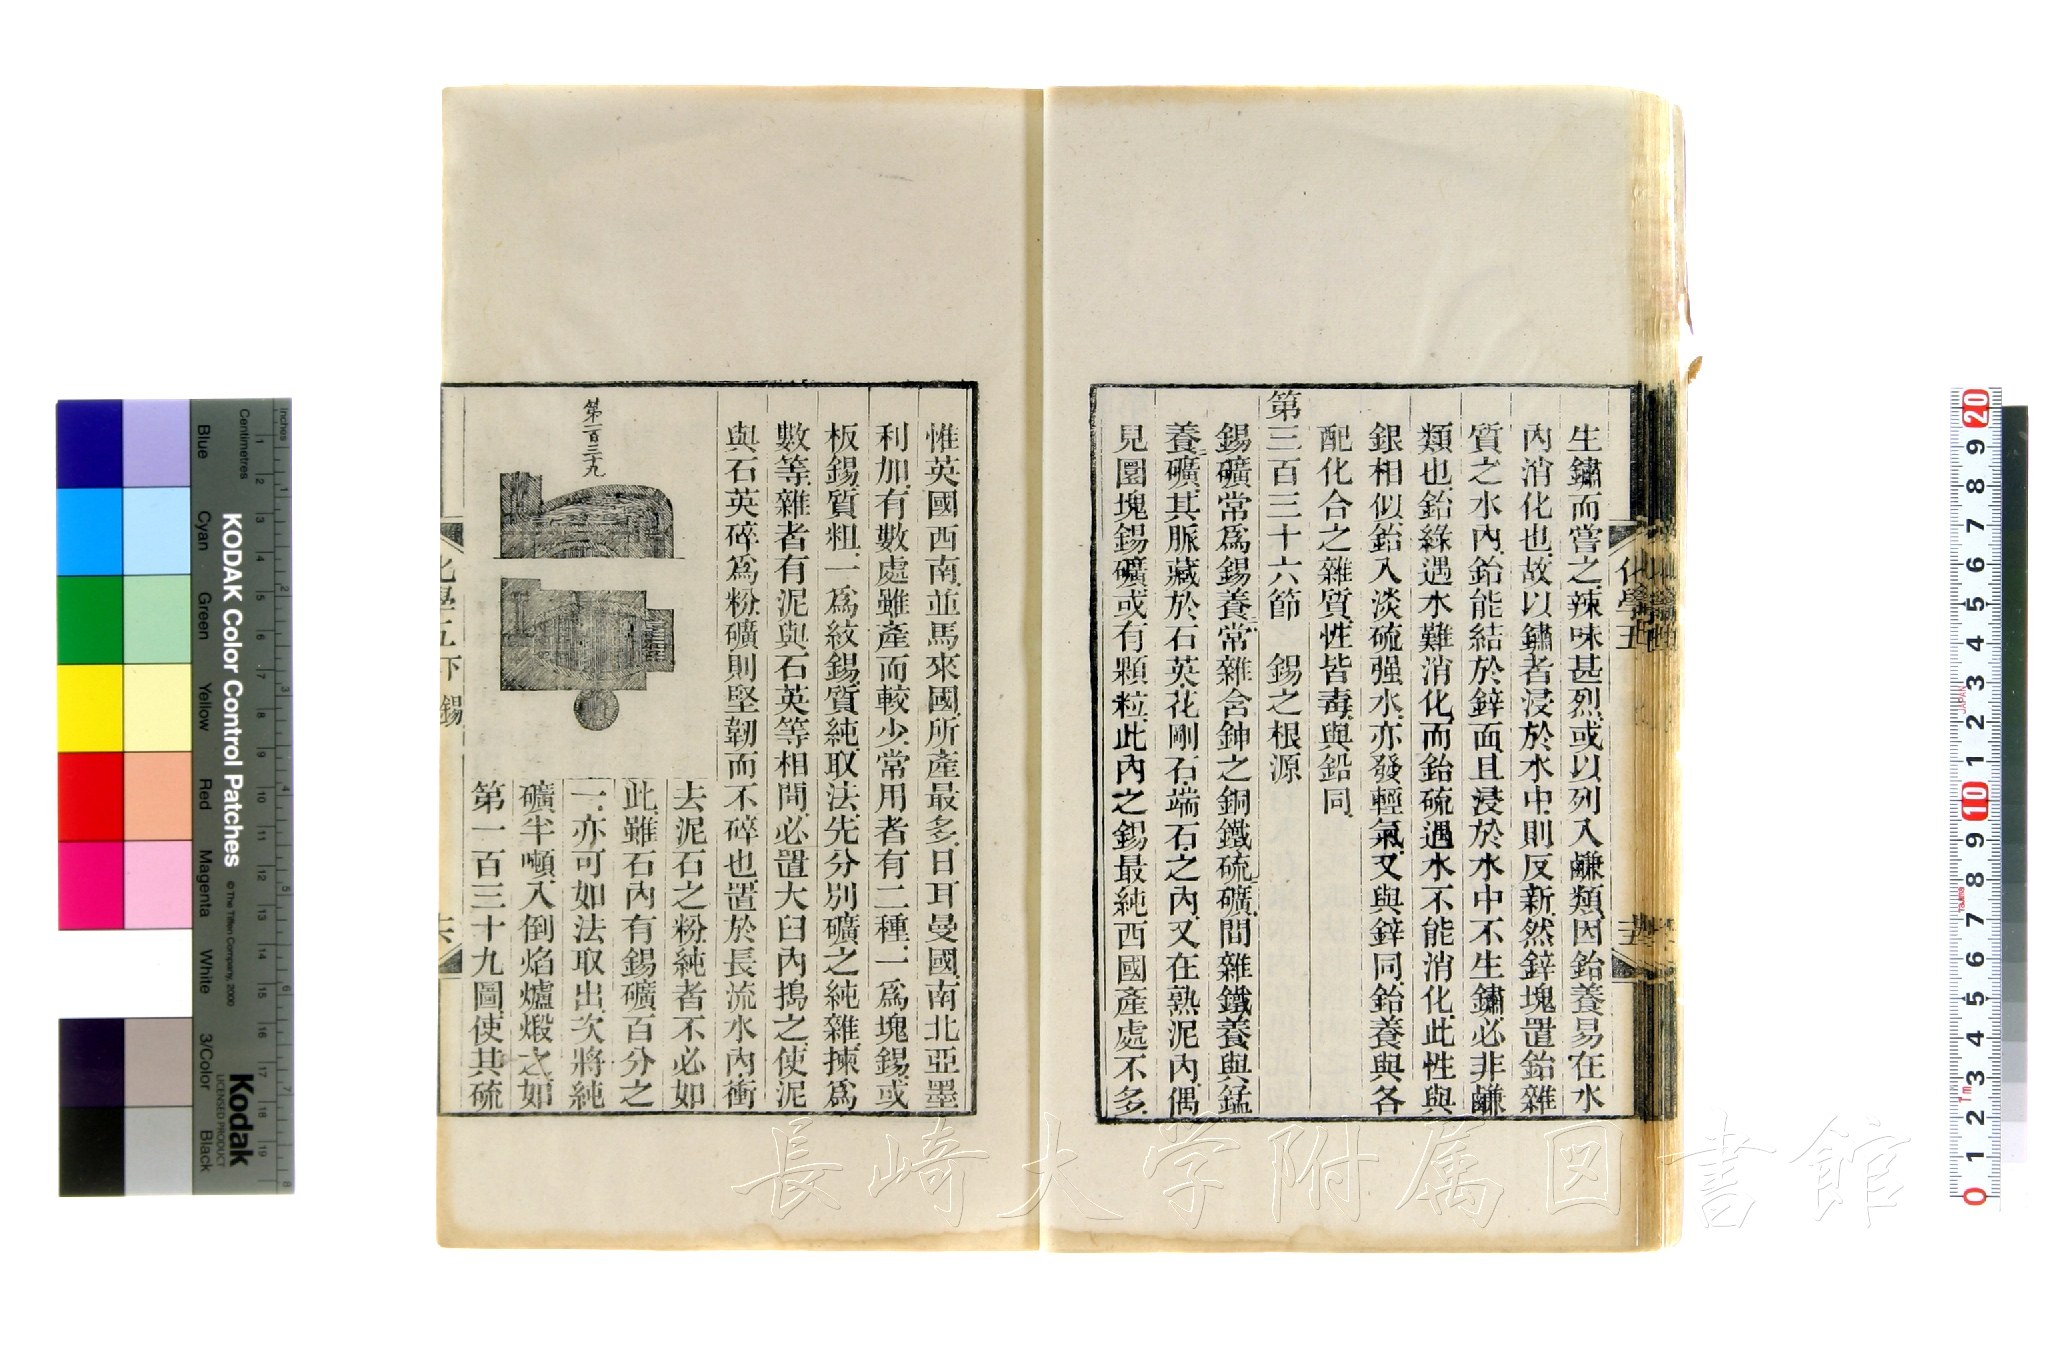 生鏽而嘗之辣味甚烈或以列入鹻類因鉛養易在水
內消化也故以鏽者浸於水中則反新然鋅塊置鉛雜
質之水內鉛能結於鋅面且浸於水中不生鏽必非鹻
類也鉛綠遇水難消化而鉛硫遇水不能消化此性與
銀相似鉛入淡硫强水亦發輕氣又與鋅同鉛養與各
配化合之雜質性皆毒與鉛同
第三百三十六節　錫之根源
錫礦常爲錫養常雜含鉮之銅鐵硫礦間雜鐵養與錳
養礦其脈藏於石英花剛石端石之內又在熟泥內偶
見圓塊錫礦或有顆粒此內之錫最純西國產處不多
化學五
惟英國西南並馬來國所產最多日耳曼國南北亞墨
利加有數處雖產而較少常用者有二種一爲塊錫或
板錫質粗一爲紋錫質純取法先分別礦之純雜揀爲
數等雜者有泥與石英等相間必置大臼內搗之使泥
與石英碎爲粉礦則堅韌而不碎也置於長流水內衝
去泥石之粉純者不必如
此雖石內有錫礦百分之
一亦可如法取出次將純
礦半噸入倒焰爐煅之如
第一百三十九圖使其硫
第一百三十九
化學五下 錫
六
長崎大学附属図書館
KODAK Color Control Patches
© The Tiffen Company, 2000
Kodak
LICENSED PRODUCT
Inches
Centimetres
Blue
Cyan
Green
Yellow
Red
Magenta
White
3/Color
Black
1 2 3 4 5 6 7 8
1 2 3 4 5 6 7 8 9 10 11 12 13 14 15 16 17 18 19
0 1 2 3 4 5 6 7 8 9 10 1 2 3 4 5 6 7 8 9 20
Tajima
JAPAN